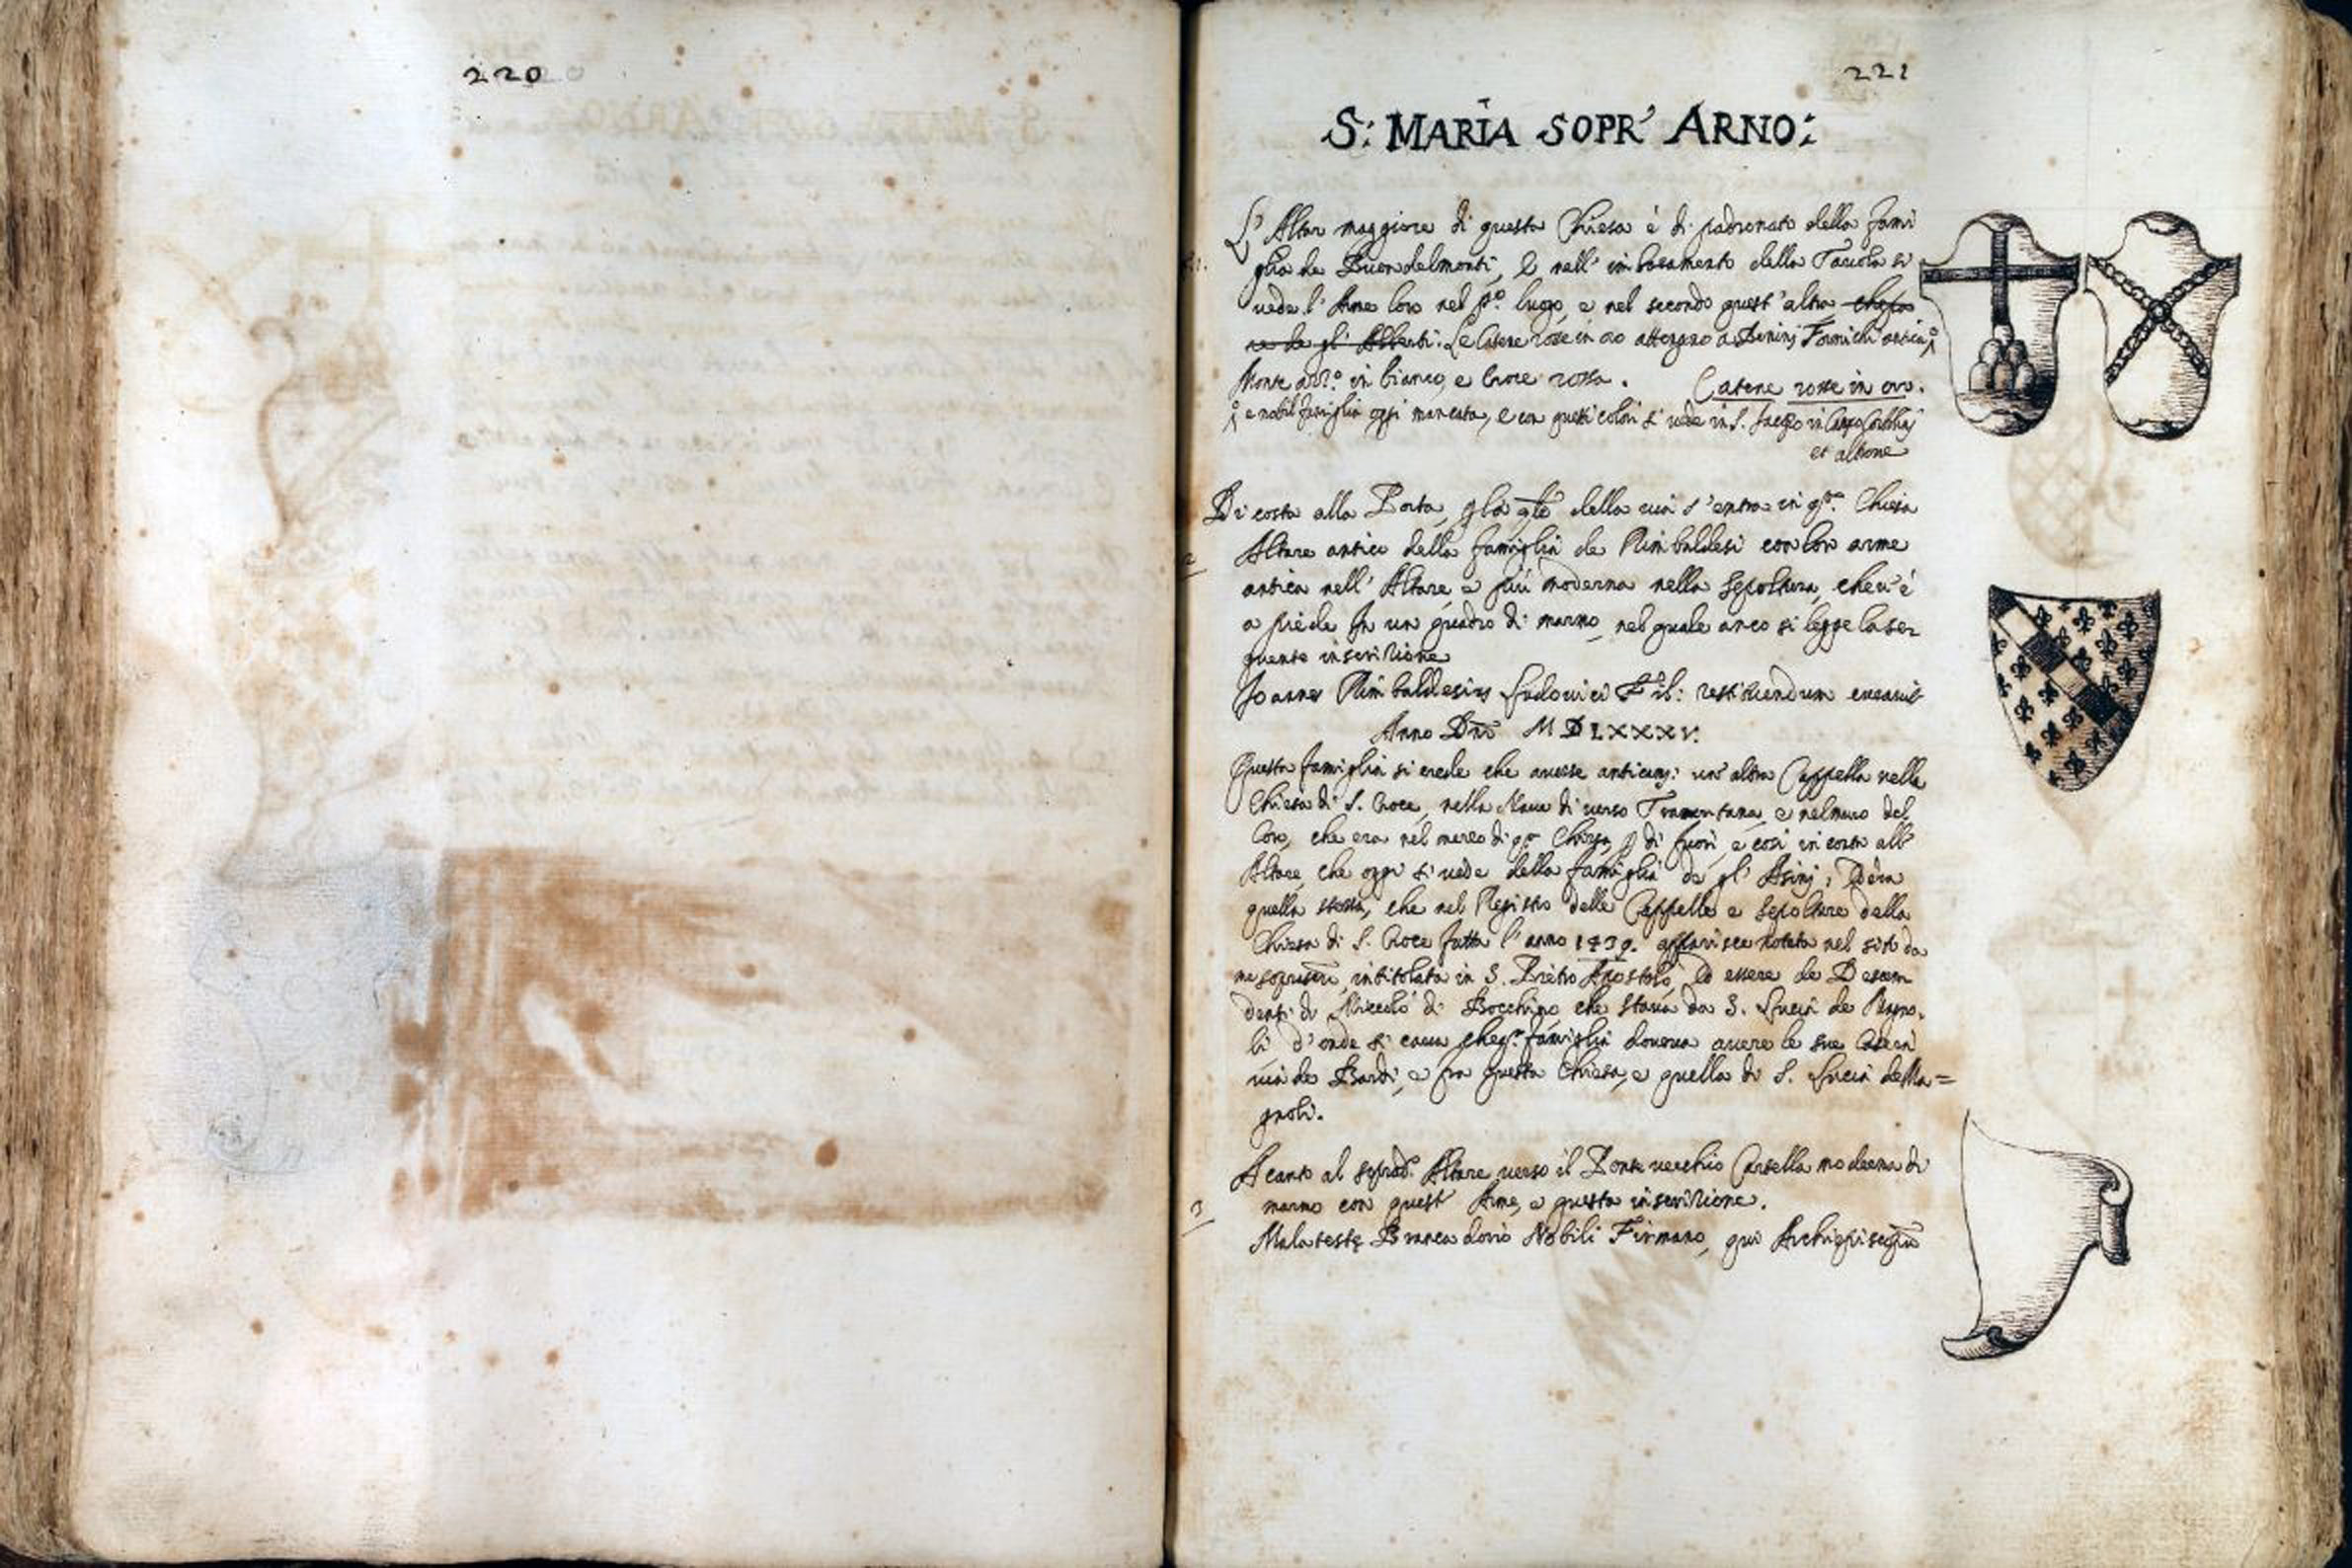 220
221
S: MARIA SOPR' ARNO:
L' Altar maggiore di questa Chiesa è di padronato della fami
glia de Buondelmonti, e nell' imbasamento della Tavola si
vede l' Arme loro nel p.º luogo, e nel secondo quest' altra
gl' Alberti. Le Catene rosse in oro
Monte in bianco, e Croce rossa. Catene rosse in oro.
e nobil famiglia oggi mancata, e con questi colori si vede in S.
et altrove
Di costa alla Porta, della via s'entra in q.ta Chiesa
2
Altare antico della famiglia de Rimbaldesi con loro arme
antica nell' Altare, e più moderna nella Sepoltura, che v' è
a piede in un quadro di marmo, nel quale anco si legge la se=
guente inscrizione
Joannes Rimbaldesius Ludovici Fil: restituendum curavit
Anno Dni MDLXXXV.
Questa famiglia si crede che avesse anticam: un' altra Cappella nella
Chiesa di S. Croce, nella Nave di verso Tramontana, e nel muro del
Coro, che era nel mezzo di q.ta Chiesa, di fuori, e così in costa all'
Altare, che oggi si vede della famiglia de gl' Asini, ed era
quella stessa, che nel Registro delle Cappelle e Sepolture della
Chiesa di S. Croce fatta l' anno 1439. apparisce notata nel sito da
me intitolata in S. Pietro Apostolo, ed essere de Descen
denti di Niccolò di Bocchino che stava da S. Lucia de Magno.
li d' onde si cava che q.ta famiglia doveva avere le sue Case in
via de Bardi, e fra questa Chiesa, e quella di S. Lucia de Ma=
gnoli.
A canto al soprad.º Altare verso il Ponte vecchio Cartella moderna di
3
marmo con quest' Arme, e questa inscrizione.
Malateste Brancadorio Nobili Firmano, qui